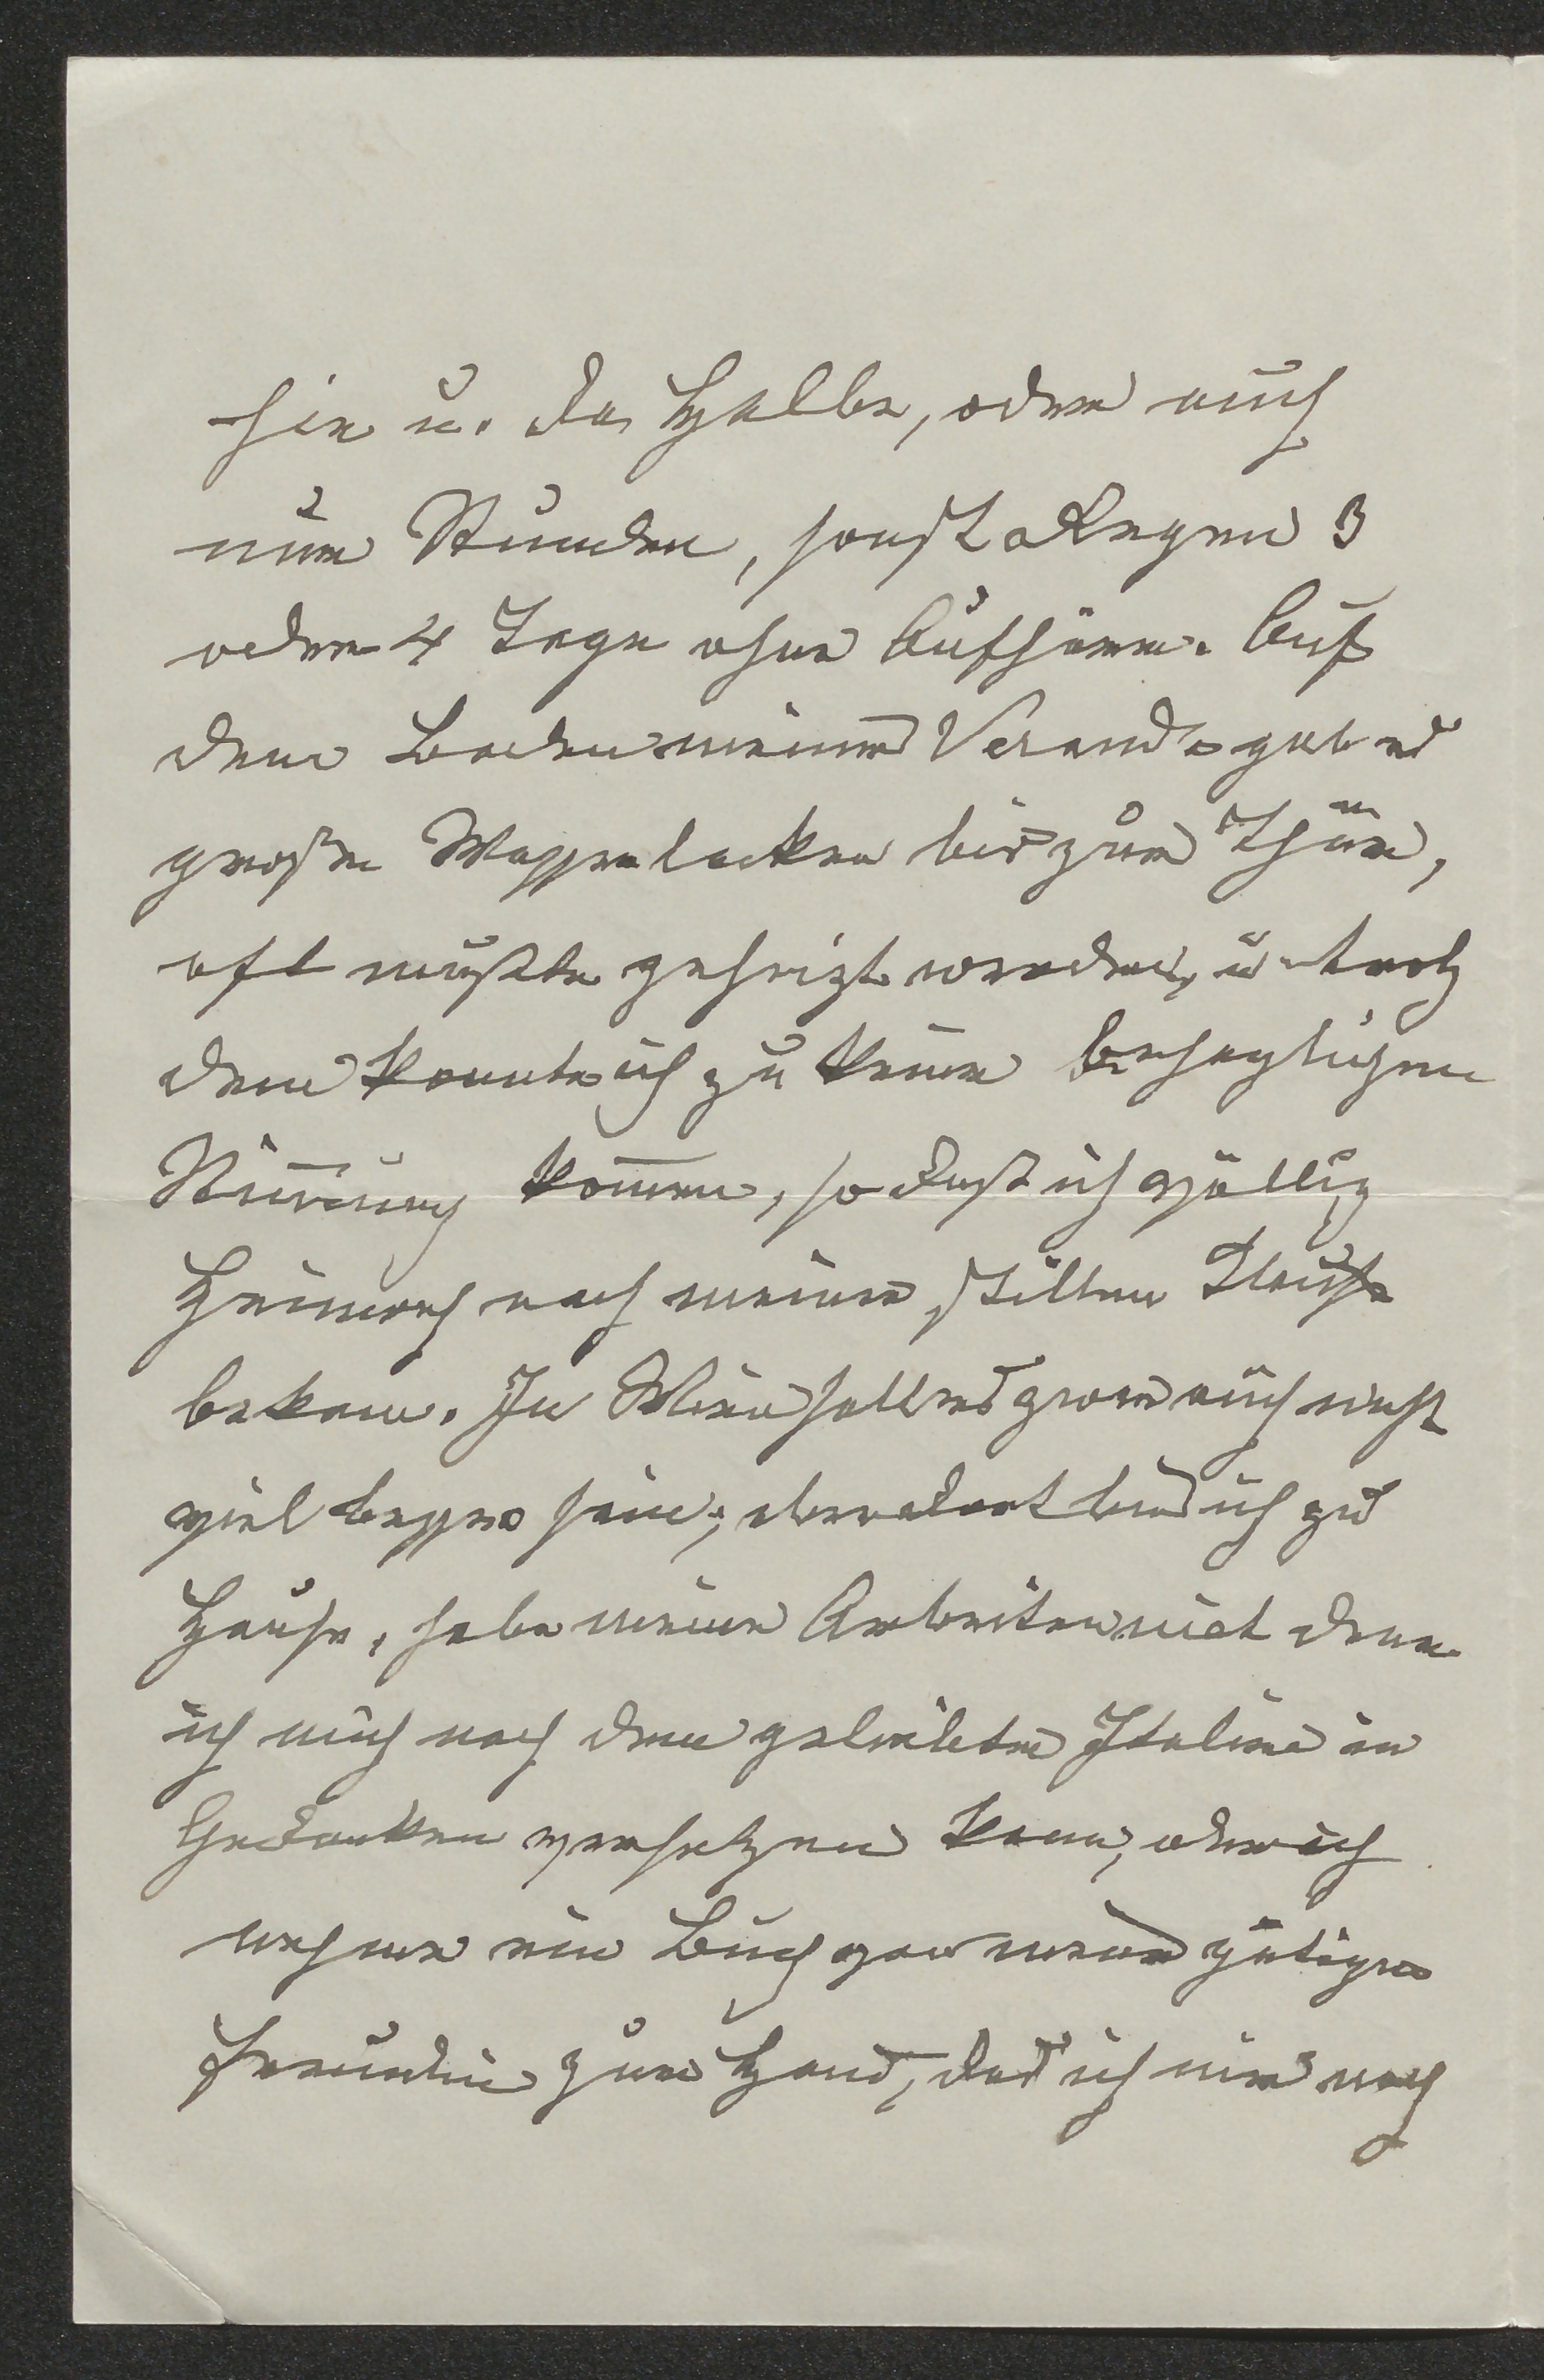 hie u. da Halbe, oder auch
nur Stunden, sonst Regen 3
oder 4 Tage ohne Aufhören. Auf
dem Boden meiner Veranda gab es
große Wasserlacken bis zur Thüre,
oft mußte geheizt werden, u. trotz
dem konnte ich zu keiner behaglichen
Stimmung kommen, so daß ich völlig
Heimweh nach meiner stillen Klause
bekam. In Wien soll es zwar auch nicht
viel besser sein; aber dort bin ich zu
Hause, habe meine Arbeiten mit denen
ich mich nach dem geliebten Italien in
Gedanken versetzen kann, oder ich
nehme ein Buch von meiner gütigen
Freundin zur Hand, das ich mir noch